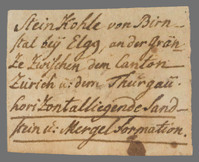 Stein Kohle von Birn-
stal bÿ Elgg, an der Grän-
ze Zwischen dem Canton
Zürich u: dem Thurgau
horizontalliegende Sand-
stein u: Mergelformation.